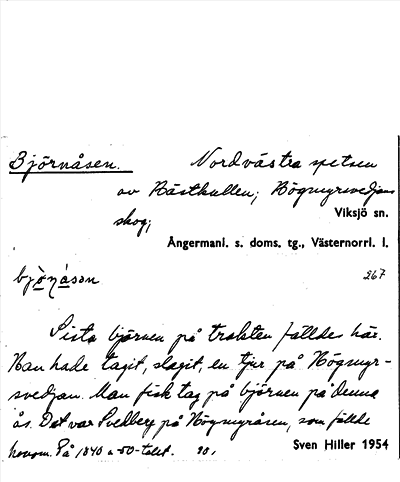 Björnåsen. Nordvästra spetsen
av Bästkullen; Högmyrsvedjans
skog;
Viksjö sn.
Ångermanl. s. doms. tg., Västernorrl. l.
267
Sista björnen på trakten fälldes här.
Han hade tagit, slagit, en tjur på Högmyr-
svedjan. Man fick tag på björnen på denna
ås. Det var Svedberg på Högmyråsen, som fällde
honom. På 1840 a -50-talet.
Sven Hiller 1954